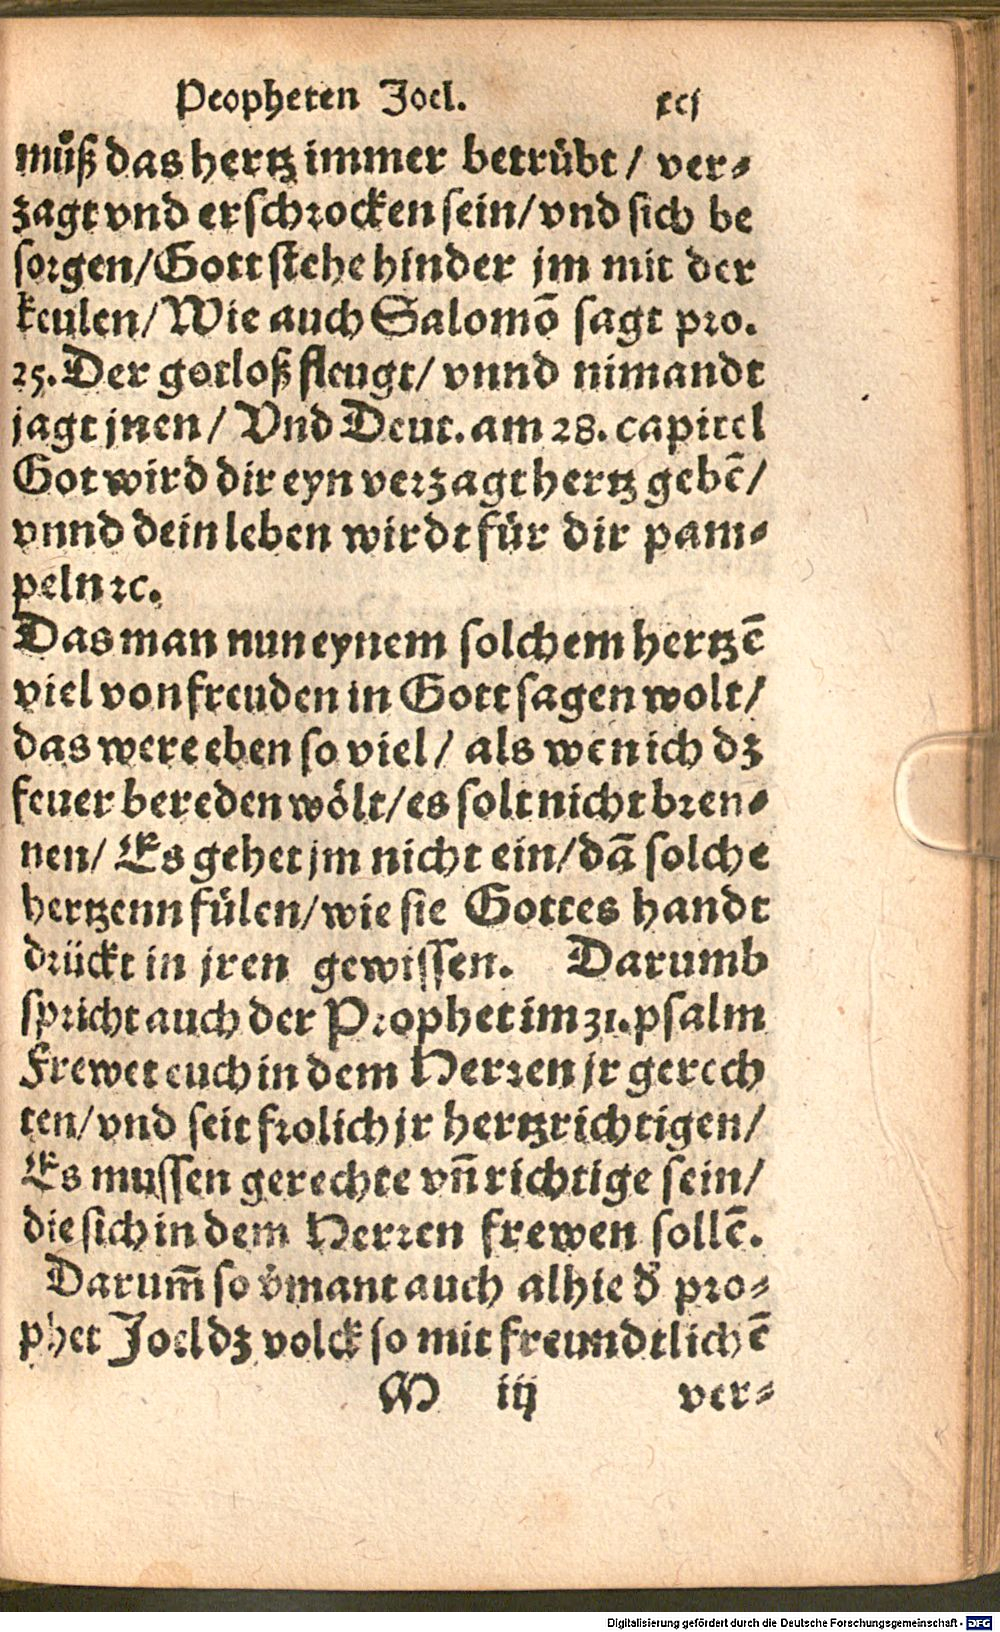 Propheten Joel. xcj
můß das hertz immer betrübt / ver⸗
zagt vnd erschrocken sein/vnd sich be
sorgen/Gott stehe hinder jm mit der
keulen/Wie auch Salomō sagt pro.
25. Der gotloß fleugt/ vnnd nimandt
jagt jnen/ Vnd Deut. am 28. capitel
Got wird dir eyn verzagt hertz gebē/
vnnd dein leben wirdt für dir pam⸗
peln ꝛc.
Das man nun eynem solchem hertzē
viel von freuden in Gott sagen wolt/
das were eben so viel/ als wen ich dz
feuer bereden wölt/es solt nicht bren⸗
nen/ Es gehet jm nicht ein/dā solche
hertzenn fülen/wie sie Gottes handt
drückt in jren gewissen. Darumb
spricht auch der Prophet im 31. psalm
Frewet euch in dem Herren jr gerech
ten/vnd seit frolich jr hertzrichtigen/
Es mussen gerechte vn̄ richtige sein/
die sich in dem Herren frewen sollē.
Darum̄ so v̓mant auch alhie d̓ pro⸗
phet Joel dz volck so mit freundtlichē
M iij ver⸗
Digitalisierung gefördert durch die Deutsche Forschungsgemeinschaft - DFG